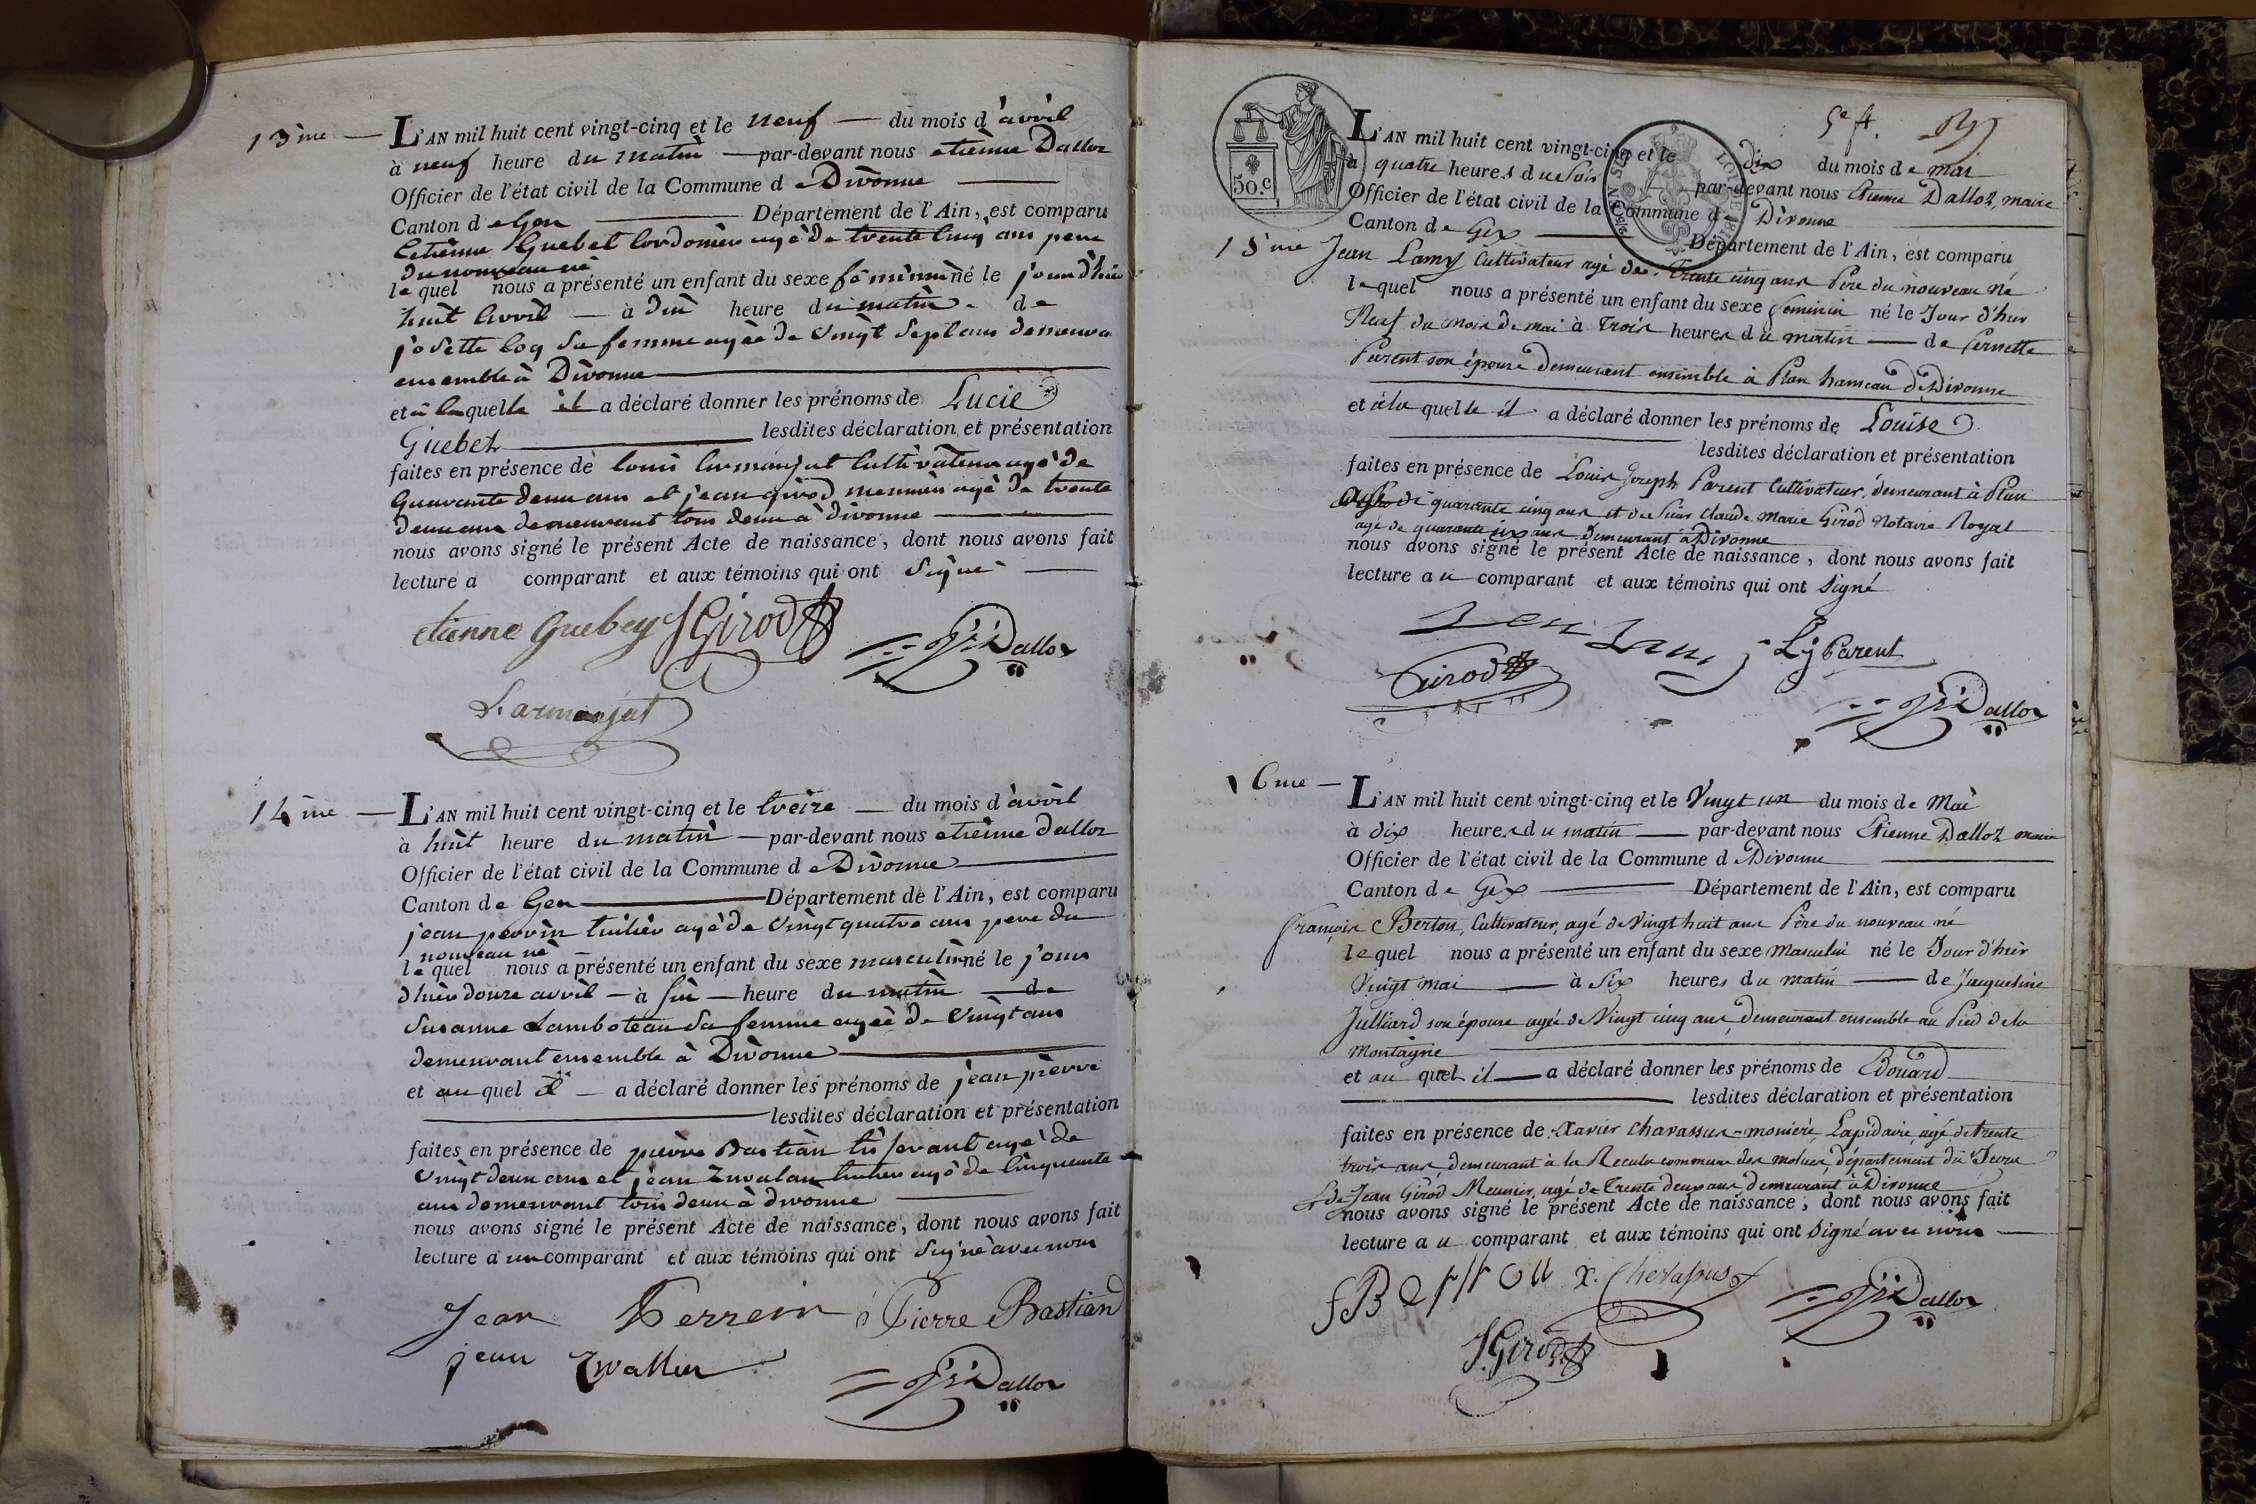 13ème — L'AN mil huit cent vingt-cinq et le neuf — du mois d'avril
à neuf heure du matin — par-devant nous etiènne Dalloz
Officier de l'état civil de la Commune de Divonne
Canton de Gex Département de l'Ain, est comparu
Etiènne Guebel Cordonier agé de trente Cinq ans pere
du nouveau né
lequel nous a présenté un enfant du sexe féminin né le jour d'hier
huit Avril — à heure du matin de
josette sa femme agée de Vingt Sept ans demeura
ensemble à Divonne
et à laquelle il a déclaré donner les prénoms de Lucie
Guebel lesdites déclaration et présentation
faites en présence de louis Armanjat Cultivateur agé de
Quarante deux ans et jean girod meunier agé de trente
deux ans demeurant tous deux à divonne
nous avons signé le présent Acte de naissance, dont nous avons fait
lecture a comparant et aux témoins qui ont Signé
etienne Guebey JGirod
Dalloz
L. armanjat
14ème — L'AN mil huit cent vingt-cinq et le treize — du mois d'avril
à huit heure du matin — par-devant nous etiènne dalloz
Officier de l'état civil de la Commune de Divonne
Canton de Gex Département de l'Ain, est comparu
jean perrin tuilier agé de Vingt quatre ans pere du
nouveau né
lequel nous a présenté un enfant du sexe masculin né le jour
d'hier douze avril — à Six — heure du matin — de
Susanne Lamboteau Sa femme agée de Vingt ans
demeurant ensemble à Divonne
et au quel il — a déclaré donner les prénoms de jean pièrre
lesdites déclaration et présentation
faites en présence de pièrre Bastian agé de
Vingt deux ans et jean tuilier agé de Cinquante
ans demeurant tous deux à divonne
nous avons signé le présent Acte de naissance, dont nous avons fait
lecture a comparant et aux témoins qui ont Signé avec nous
Jean Perrein Pierre Bastian
jean Zwallen
Dalloz
50 C
L'AN mil huit cent vingt-cinq et le dix du mois de mai
à quatre heures du Soir par-devant nous Etienne Dalloz, maire
Officier de l'état civil de la Commune de Divonne
Canton de Gex Département de l'Ain, est comparu
15ème Jean Lamy Cultivateur agé de Trente cinq ans Père du nouveau né
lequel nous a présenté un enfant du sexe féminin né le Jour d'hier
Neuf du mois de mai à Trois heures du matin — de Pernette
Parent son épouse demeurant ensemble à Plan hameau de Divonne
et à la quelle il a déclaré donner les prénoms de Louise
lesdites déclaration et présentation
faites en présence de Louis Joseph Parent Cultivateur, demeurant à Plan
de quarante cinq ans et de Sieur Claude Marie Girod Notaire Royal
agé de quarante six ans demeurant à Divonne
nous avons signé le présent Acte de naissance, dont nous avons fait
lecture au comparant et aux témoins qui ont Signé
Jean Lamy
LJ Parent
Girod
Dalloz
16me — L'AN mil huit cent vingt-cinq et le Vingt un du mois de Mai
à dix heures du matin — par-devant nous Etienne Dalloz maire
Officier de l'état civil de la Commune de Divonne
Canton de Gex Département de l'Ain, est comparu
françois Berton, Cultivateur, agé de Vingt huit ans Père du nouveau né
lequel nous a présenté un enfant du sexe Masculin né le Jour d'hier
Vingt mai — à Six heures du matin — de Jacqueline
Julliard son épouse agée de Vingt cinq ans, demeurant ensemble au Pied de la
Montagne
et au quel il — a déclaré donner les prénoms de Edouard
lesdites déclaration et présentation
faites en présence de Xavier Chavassus-monière, Lapidaire, agé de trente
trois ans, demeurant à la commune des molunes, département du Jura
& de Jean Girod Meunier, agé de Trente deux ans demeurant à Divonne
nous avons signé le présent Acte de naissance, dont nous avons fait
lecture au comparant et aux témoins qui ont Signé avec nous
fBertton x. Chevassus
Dalloz
J. Girod